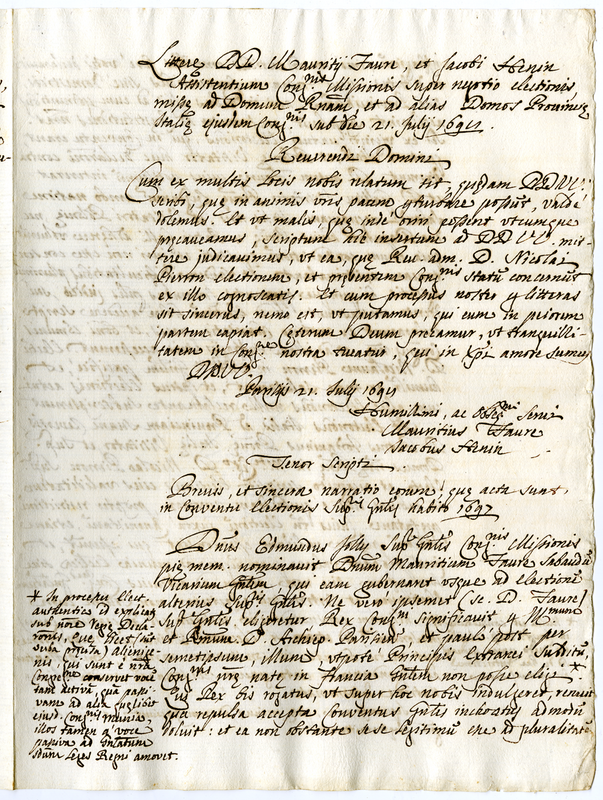 Litterę DD. Mauritij Faure, et Jacobi Henin
Assistentium Congnis Missionis super negotio electionis
missę ad Domum Rnam, et ad alias Domos Provincię
Italię ejusdem Congnis sub die 21. Julij 1697.
Reverendi Domini
Cum ex multis locis nobis relatum sit, quędam DDVV.
scribi, quę in animis vris pacem pturbare possint, valde
dolemus. Et vt malis, quę inde oriri possent vtcumque
pręcaveamus, scriptum hic insertum ad DDVV. mit-
tere judicavimus, vt ea, quę Rev. adm. D. Nicolai
Pierron electionem, et pręsentem Congnis statũ concernũt
ex illo cognoscatis. Et cum processus noster
sit sincerus, nemo est, vt putamus, qui eum in peiorem
partem capiat. Cęterum Deum precamur, vt tranquilli-
tatem in Congne nostra tueatur, qui in Xpi amore sumus
DDVV.
Parisijs 21. Julij 1697
Humillimi, ac obseqmi servi
Mauritius Faure
Jacobus Henin
Tenor Scripti
Brevis, et sincera narratio eorum, quę acta sunt
in Conventu electionis Supris Gnlis habito 1697
Dnus Edmundus Jolly Supr Gnlis Congnis Missionis
pię mem. nominavit Dnum Mauritium Faure Sabaudũ
Vicarium Gnlem, qui eam gubernaret vsque ad electionẽ
alterius Supris Gnlis. Ne verò ipsemet (sc. D. Faure)
Supr Gnlis eligeretur, Rex Congni significavit
et Rmum D. Archiep. Parisiens. et paulò post per
semetipsum, illum, vtpotè Principis extranei subditũ,
Congnis prę natę in Francia Gnlem non posse eligi. *
Etsi Rex bis rogatus, vt super hoc nobis indulgeret, renuit
qua repulsa accepta Conventus Gnlis inchoatus admodũ
doluit: et ea non obstante sese legitimũ esse ad pluralitatẽ
* In processu elect.
authentico ad explican
sub nore Regię Decla-
rõnis, quę licet (sunt
verba projecta) alienige-
nis, qui sunt è nra
Congne conservet vocẽ
tam activã, quã passi-
vam ad alia quęlibet
ejusd. Congnis munia,
illos tamen à voce
passiva ad Gnlatum
scdum leges Regni amovet.